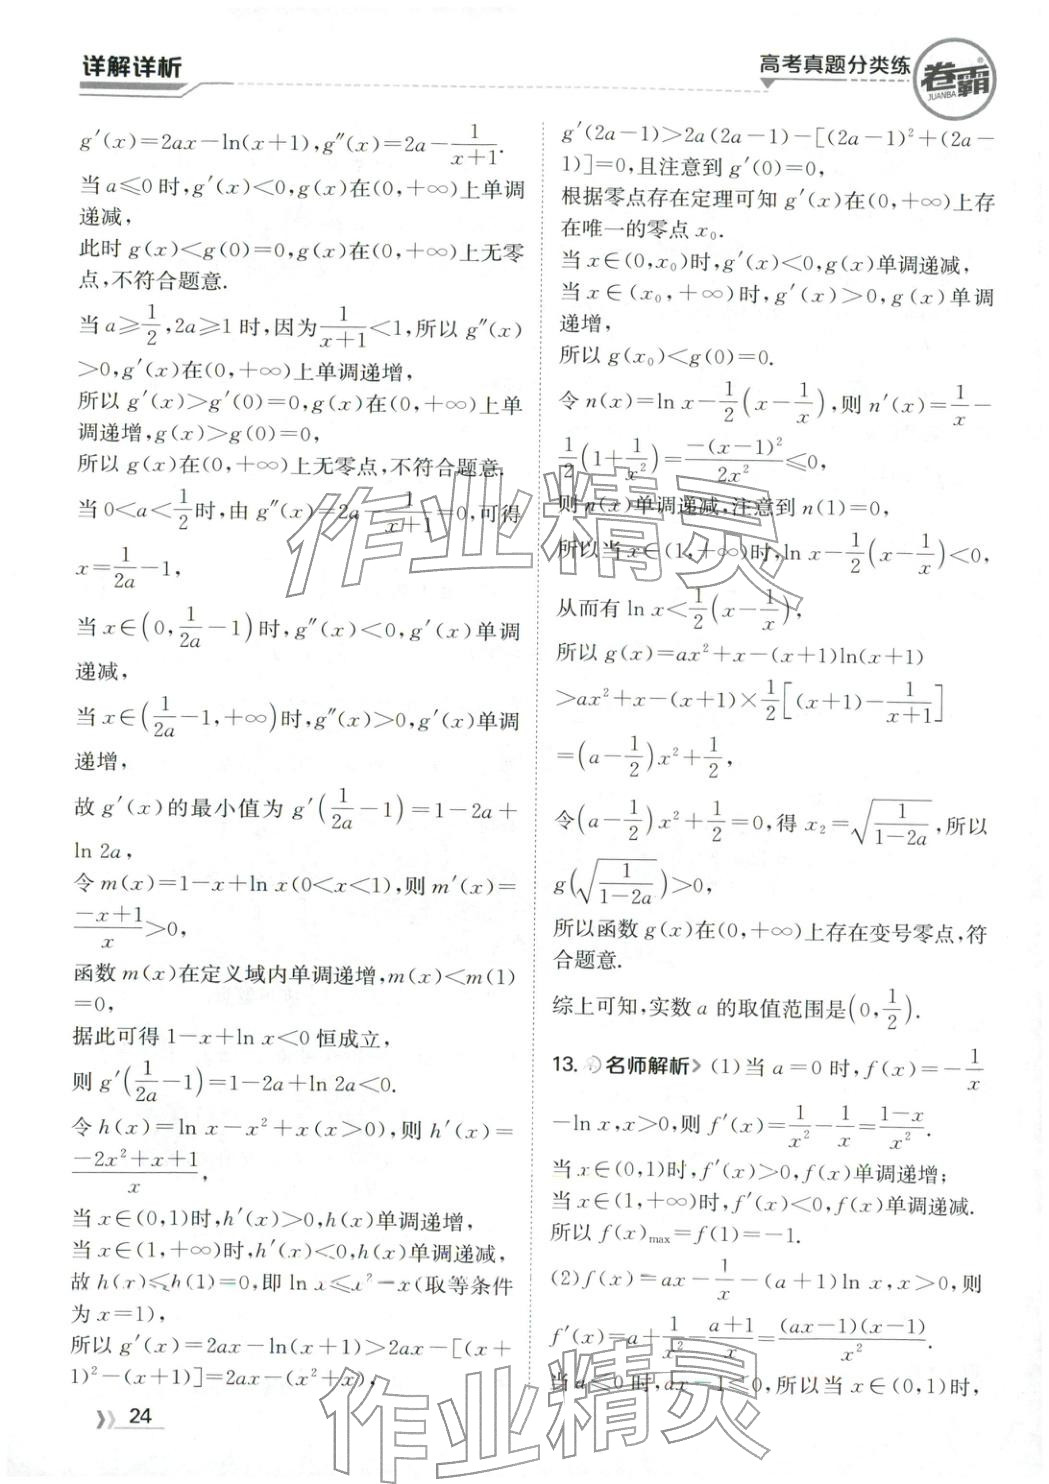 详解详析
高考真题分类练
卷霸
JUANBA
g′(x)=2ax-ln(x+1),g″(x)=2a-\frac{1}{x+1}.
当a≤0时,g′(x)<0,g(x)在(0,+∞)上单调
递减,
此时g(x)<g(0)=0,g(x)在(0,+∞)上无零
点,不符合题意.
当a≥\frac{1}{2},2a≥1时,因为\frac{1}{x+1}<1,所以g″(x)
>0,g′(x)在(0,+∞)上单调递增,
所以g′(x)>g′(0)=0,g(x)在(0,+∞)上单
调递增,g(x)>g(0)=0,
所以g(x)在(0,+∞)上无零点,不符合题意.
当0<a<\frac{1}{2}时,由g″(x)=2a-\frac{1}{x+1}=0,可得
x=\frac{1}{2a}-1,
当x∈(0,\frac{1}{2a}-1)时,g″(x)<0,g′(x)单调
递减,
当x∈(\frac{1}{2a}-1,+∞)时,g″(x)>0,g′(x)单调
递增,
故g′(x)的最小值为g′(\frac{1}{2a}-1)=1-2a+
ln 2a,
令m(x)=1-x+ln x(0<x<1),则m′(x)=
\frac{-x+1}{x}>0,
函数m(x)在定义域内单调递增,m(x)<m(1)
=0,
据此可得1-x+ln x<0恒成立,
则g′(\frac{1}{2a}-1)=1-2a+ln 2a<0.
令h(x)=ln x-x²+x(x>0),则h′(x)=
\frac{-2x²+x+1}{x},
当x∈(0,1)时,h′(x)>0,h(x)单调递增,
当x∈(1,+∞)时,h′(x)<0,h(x)单调递减,
故h(x)≤h(1)=0,即ln x≤x²-x(取等条件
为x=1),
所以g′(x)=2ax-ln(x+1)>2ax-[(x+
1)²-(x+1)]=2ax-(x²+x),
24
g′(2a-1)>2a(2a-1)-[(2a-1)²+(2a-
1)]=0,且注意到g′(0)=0,
根据零点存在定理可知g′(x)在(0,+∞)上存
在唯一的零点x₀.
当x∈(0,x₀)时,g′(x)<0,g(x)单调递减,
当x∈(x₀,+∞)时,g′(x)>0,g(x)单调
递增,
所以g(x₀)<g(0)=0.
令n(x)=ln x-\frac{1}{2}(x-\frac{1}{x}),则n′(x)=\frac{1}{x}-
\frac{1}{2}(1+\frac{1}{x²})=\frac{-(x-1)²}{2x²}≤0,
则n(x)单调递减,注意到n(1)=0,
所以当x∈(1,+∞)时,ln x-\frac{1}{2}(x-\frac{1}{x})<0,
从而有ln x<\frac{1}{2}(x-\frac{1}{x}),
所以g(x)=ax²+x-(x+1)ln(x+1)
>ax²+x-(x+1)×\frac{1}{2}[(x+1)-\frac{1}{x+1}]
=(a-\frac{1}{2})x²+\frac{1}{2},
令(a-\frac{1}{2})x²+\frac{1}{2}=0,得x₂=\sqrt{\frac{1}{1-2a}},所以
g(\sqrt{\frac{1}{1-2a}})>0,
所以函数g(x)在(0,+∞)上存在变号零点,符
合题意.
综上可知,实数a的取值范围是(0,\frac{1}{2}).
13. 名师解析 (1)当a=0时,f(x)=-\frac{1}{x}
-ln x,x>0,则f′(x)=\frac{1}{x²}-\frac{1}{x}=\frac{1-x}{x²}.
当x∈(0,1)时,f′(x)>0,f(x)单调递增;
当x∈(1,+∞)时,f′(x)<0,f(x)单调递减.
所以f(x)max=f(1)=-1.
(2)f(x)=ax-\frac{1}{x}-(a+1)ln x,x>0,则
f′(x)=a+\frac{1}{x²}-\frac{a+1}{x}=\frac{(ax-1)(x-1)}{x²}.
当a≤0时,ax-1<0,所以当x∈(0,1)时,
作业精灵
作业精灵